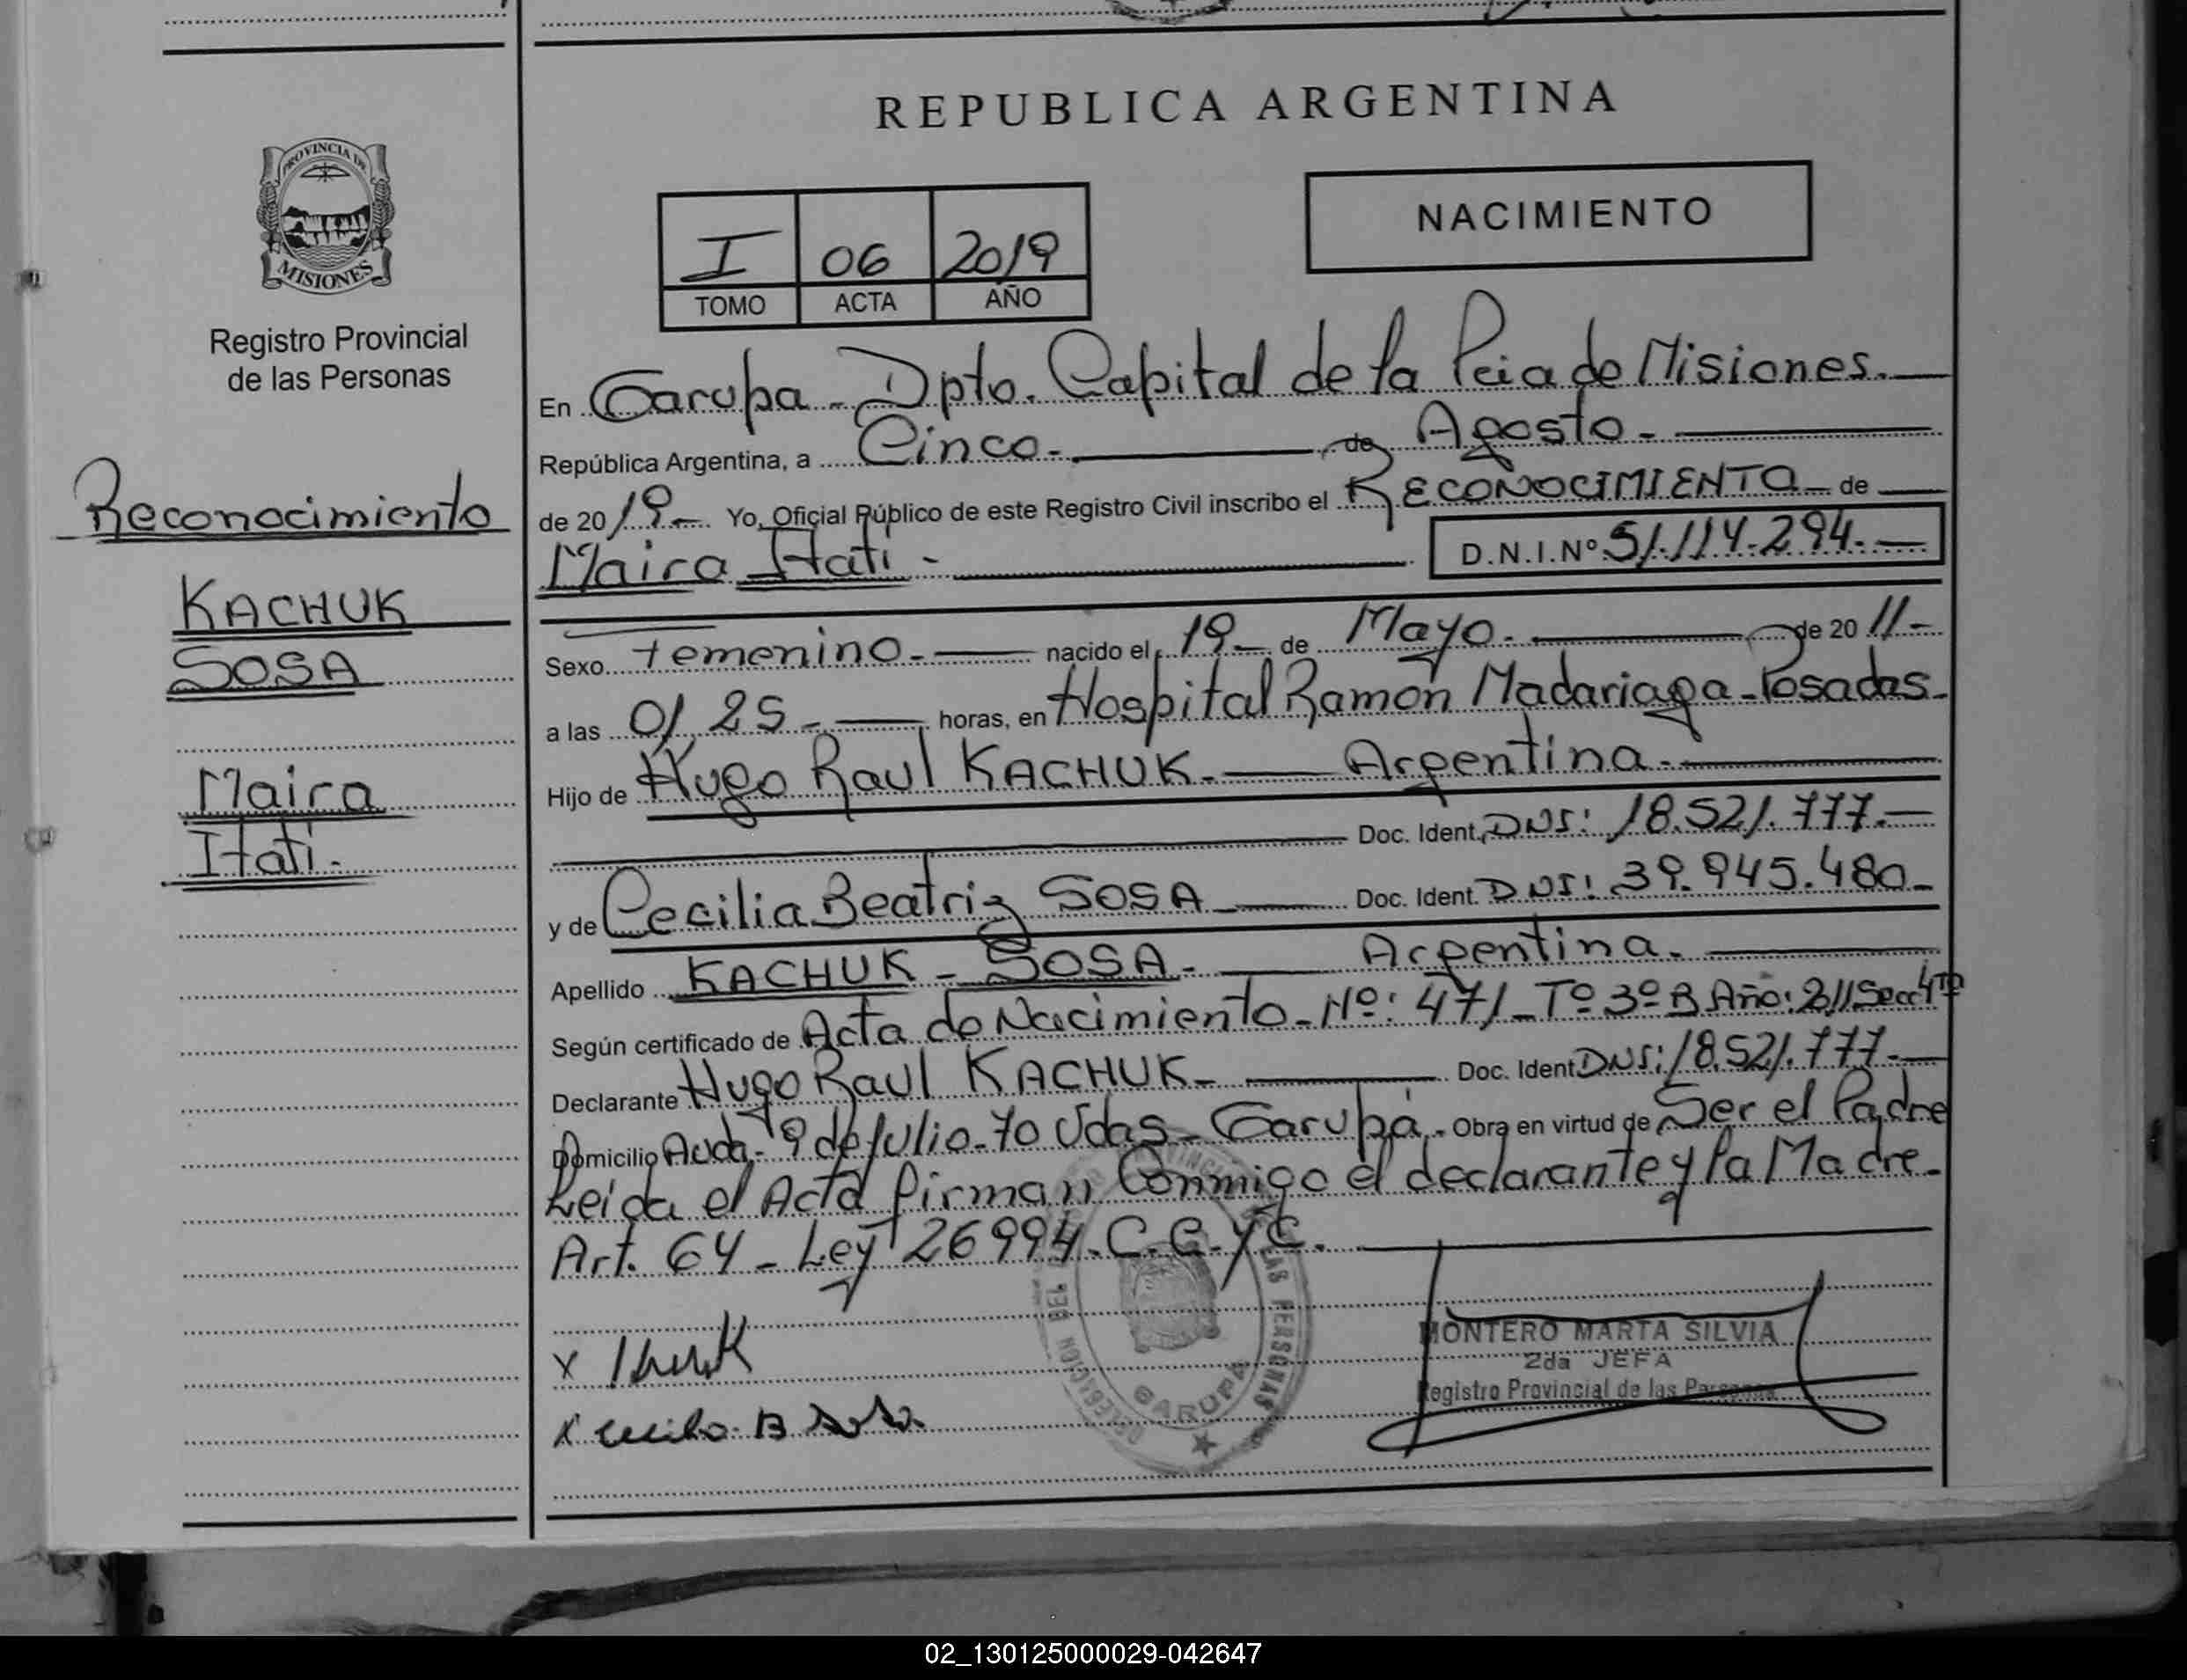 REPUBLICA ARGENTINA
PROVINCIA DE
MISIONES
Registro Provincial
de las Personas
NACIMIENTO
I 06 2019
TOMO ACTA AÑO
Reconocimiento
KACHUK
SOSA
Maira
Itatí.
En Garupa - Dpto. Capital de la Pcia de Misiones.
República Argentina, a Cinco. de Agosto.
de 2019 Yo, Oficial Público de este Registro Civil inscribo el RECONOCIMIENTO de
Maira Itatí - D.N.I.Nº 51.114.294.
Sexo Femenino. nacido el 19 de Mayo. de 2011
a las 01,25 horas, en Hospital Ramón Madariaga - Posadas.
Hijo de Hugo Raul KACHUK. Argentina.
Doc. Ident. DNI: 18.521.777.
y de Cecilia Beatriz SOSA Doc. Ident. DNI: 39.945.480
Apellido KACHUK - SOSA. Argentina.
Según certificado de Acta de Nacimiento - Nº: 471 - Tº 3º B Año: 2011 Secc 4ta
Declarante Hugo Raul KACHUK Doc. Ident DNI: 18.521.777.
Domicilio Avda. 9 de Julio - 70 Vdas - Garupá. Obra en virtud de Ser el Padre
Leida el Acta firman Conmigo el declarante y la Madre.
Art. 64 - Ley 26994. C.C. y C.
X
X B Sosa
DELEGACION DEL PROVINCIAL DE LAS PERSONAS
GARUPA
MONTERO MARTA SILVIA
2da JEFA
Registro Provincial de las Personas
02_130125000029-042647